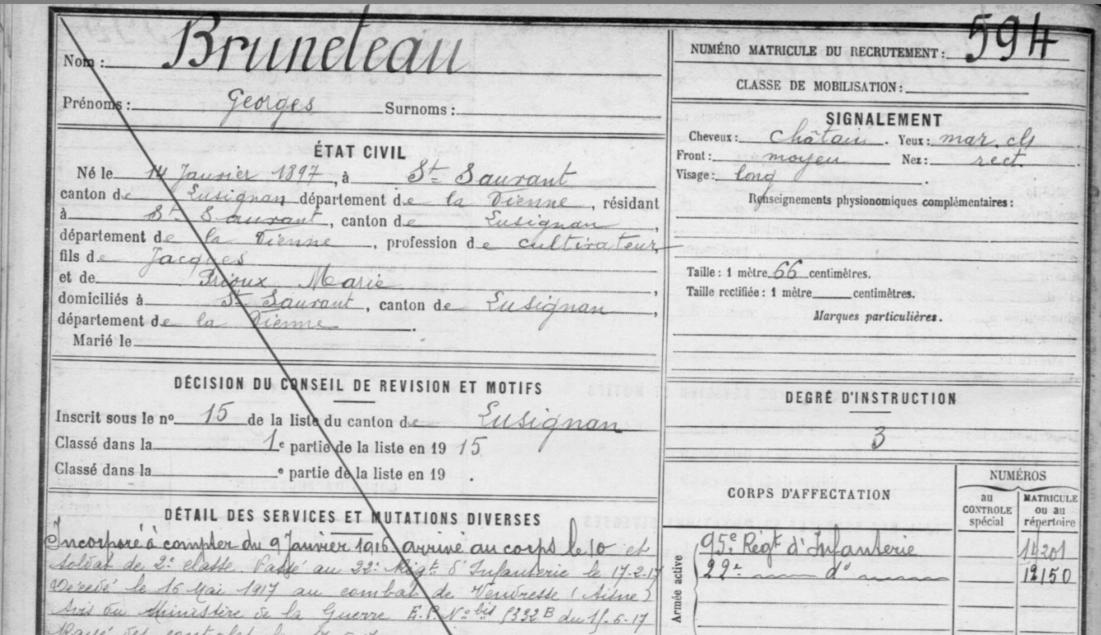 Nom : Bruneteau
Prénoms : Georges Surnoms :
ÉTAT CIVIL
Né le 14 Janvier 1897, à St Saurant
canton de Lusignan département de la Vienne, résidant
à St Saurant, canton de Lusignan,
département de la Vienne, profession de cultivateur,
fils de Jacques
et de Prioux Marie,
domiciliés à St Saurant, canton de Lusignan,
département de la Vienne.
Marié le
DÉCISION DU CONSEIL DE REVISION ET MOTIFS
Inscrit sous le nº 15 de la liste du canton de Lusignan
Classé dans la 1e partie de la liste en 1915
Classé dans la e partie de la liste en 19 .
DÉTAIL DES SERVICES ET MUTATIONS DIVERSES
Incorporé à compter du 9 Janvier 1916 arrivé au corps le 10 et
soldat de 2e classe. Passé au 22e Régt d'Infanterie le 17-2-17
Décédé le 16 Mai 1917 au combat de Vendresse (Aisne)
Avis du Ministère de la Guerre du 15-6-17
NUMÉRO MATRICULE DU RECRUTEMENT : 594
CLASSE DE MOBILISATION :
SIGNALEMENT
Cheveux : châtain. Yeux : mar cls
Front : moyen Nez : rect.
Visage : long
Renseignements physionomiques complémentaires :
Taille : 1 mètre 66 centimètres.
Taille rectifiée : 1 mètre centimètres.
Marques particulières.
DEGRÉ D'INSTRUCTION
3
CORPS D'AFFECTATION
NUMÉROS
au CONTROLE spécial
MATRICULE ou au répertoire
Armée active
95e Régt d'Infanterie 14201
22e d° 12150